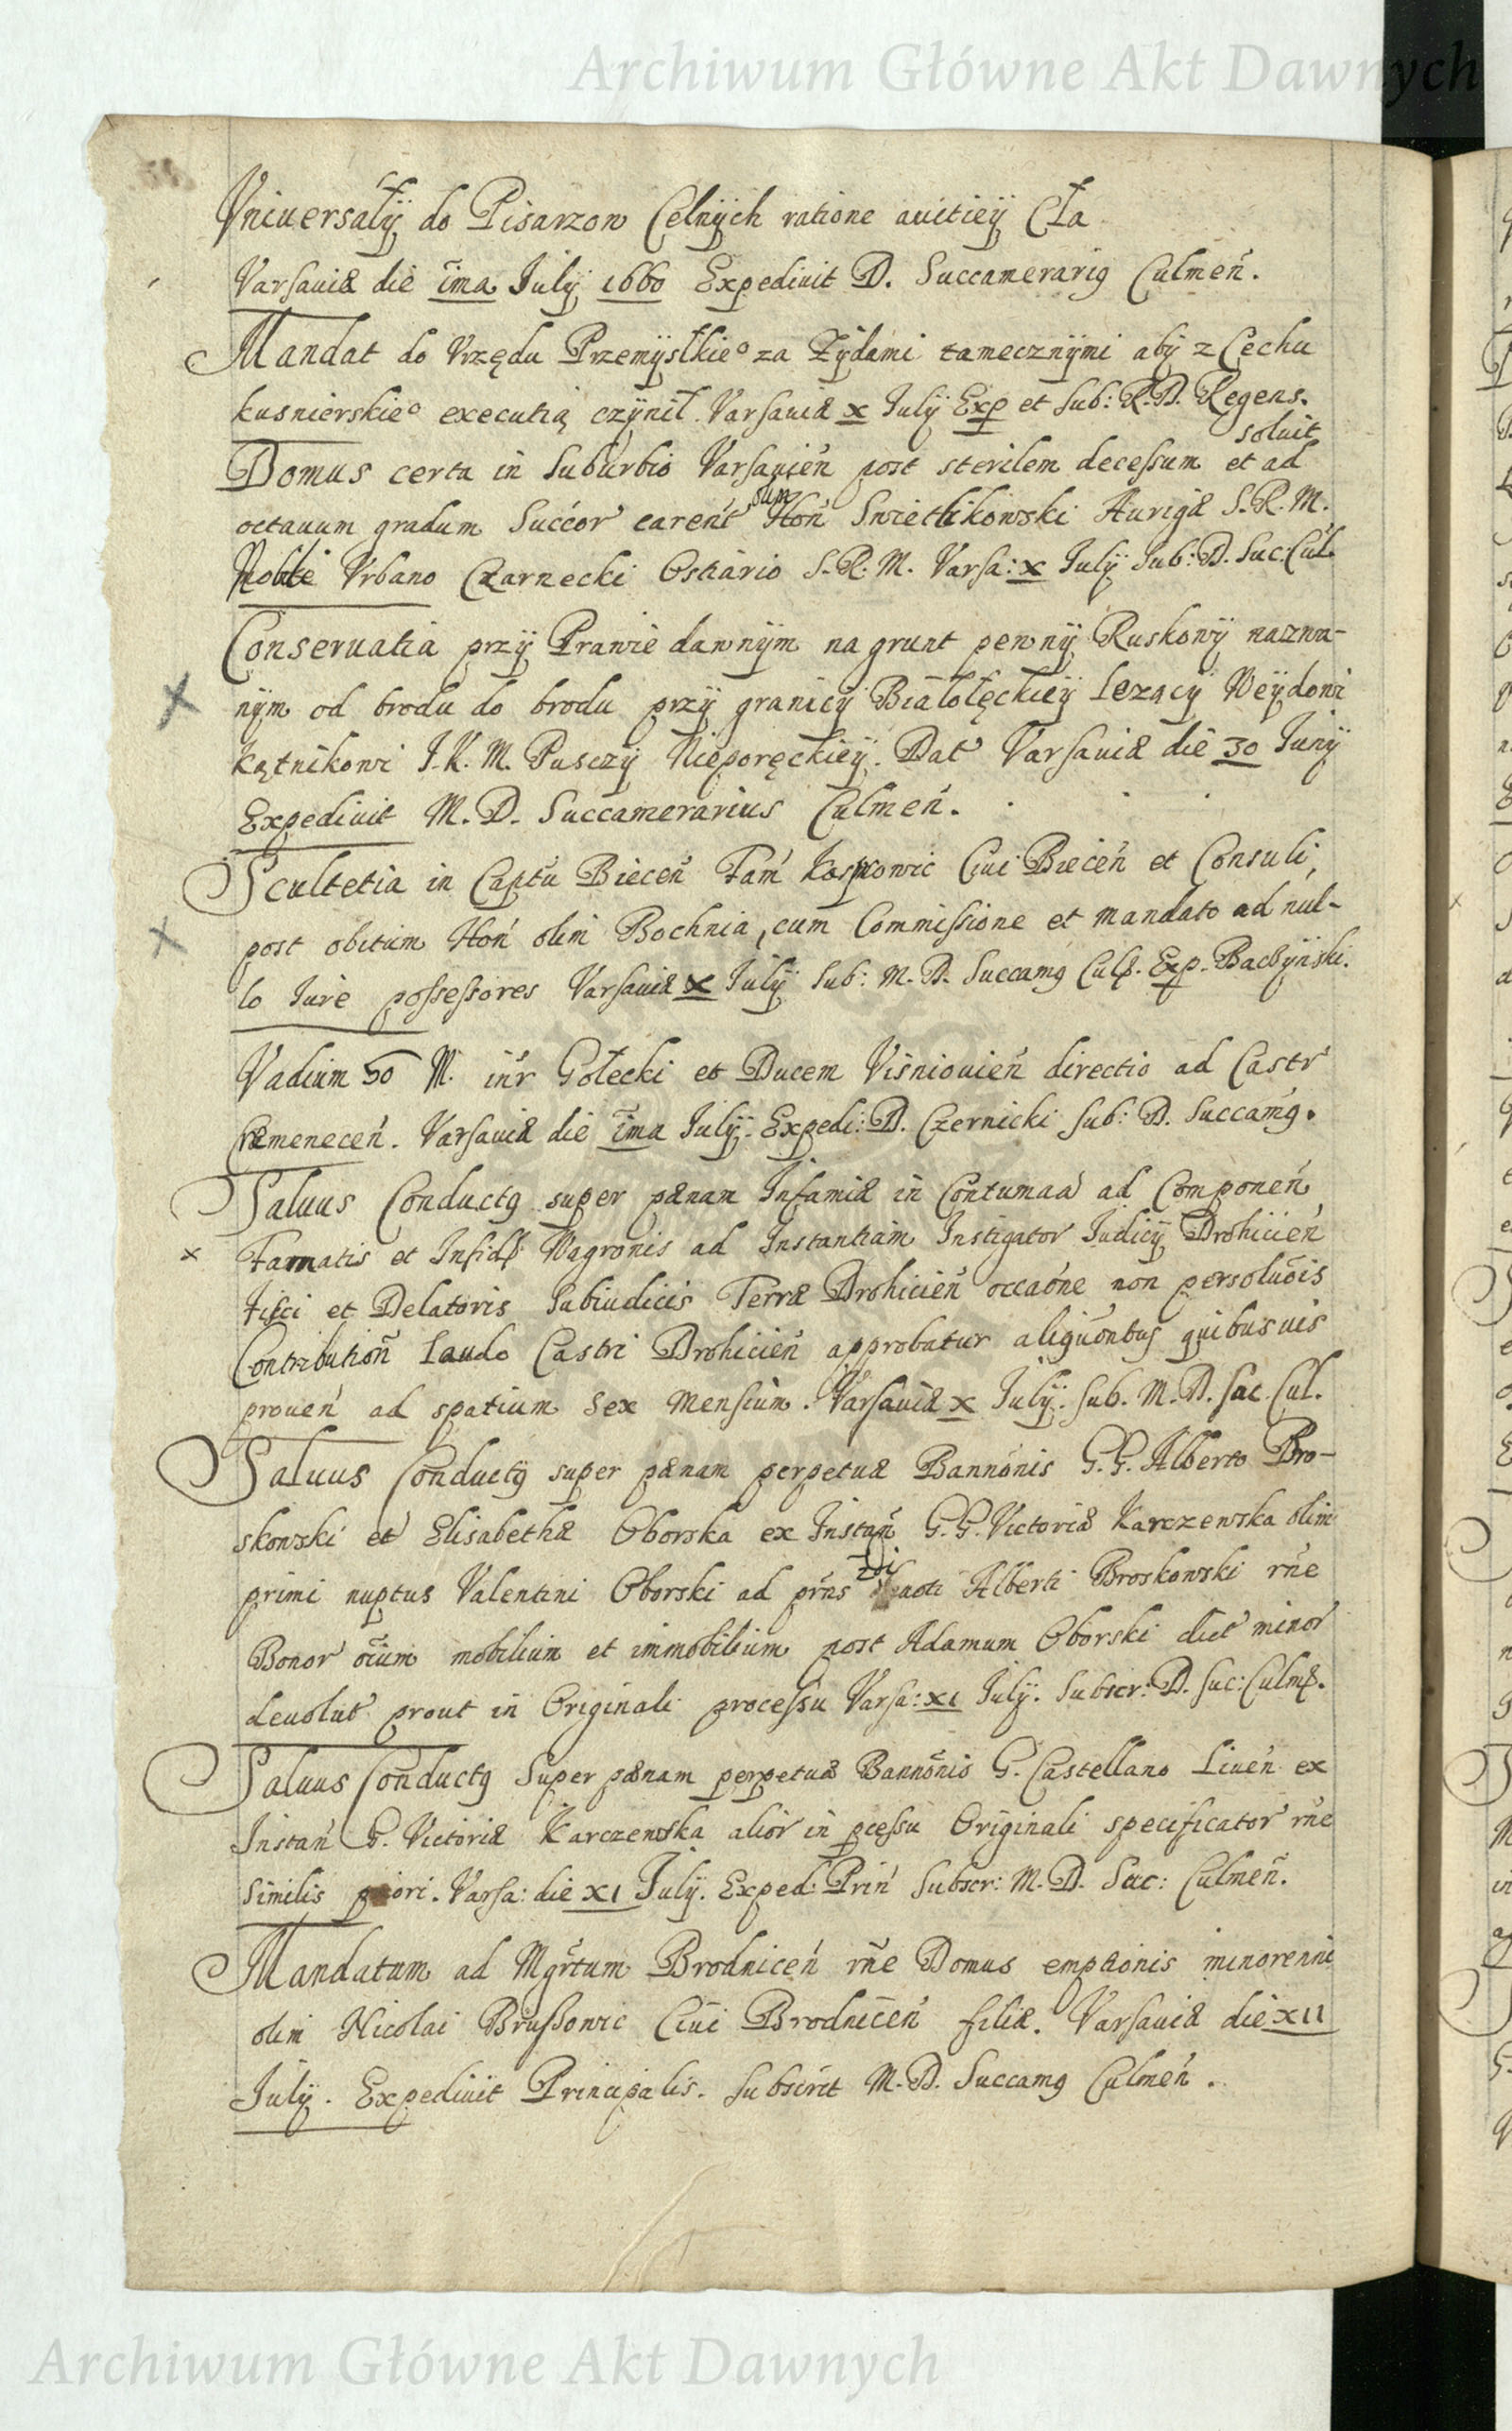 Archiwum Główne Akt Dawnych
Vniuersały do Pisarzow Celnych ratione auitiey Cła
Varsauiæ die ima July 1660 Expediuit D. Succamerarig Culmeñ.
Mandat do Vrzędu Przemyslkieo za Zydami tamecznymi aby z Cechu
kusnierskieo executią czynił Varsauiæ x July Exp et Sub: R.D. Regens.
soluit
Domus certa in Suburbio Varsauień post sterilem decessum et ad
olim
octauum gradum Succor carent Hoń Swietlikowski Aurigæ S.R.M.
Nobli Vrbano Czarnecki Ostiario S.R.M. Varsa: x July Sub: D. Suc: Cul
Conseruatia przy Prawie dawnym na grunt pewny Ruskowy nazwa-
nym od brodu do brodu przy granicy Białołęckiey Lezący Weydowi
Kątnikowi J.K.M. Pusczy Nieporęckiey. Dat Varsauiæ die 30 Juny
Expediuit M.D. Succamerarius Culmeñ.
Scultetia in Captu Bieceń Fam Ciui Bieceń et Consuli,
post obitum Hoń olim Bochnia, cum Commissione et mandato ad nul-
lo Jure possessores Varsauiæ x July Sub: M.D. Succamg Exp. Baczynski.
Vadium 50 M. inr Gołecki et Ducem Visniouień directio ad Castr
Cremeneceń. Varsauiæ die ima July. Expedi: D. Czernicki Sub: D. Succamg.
Saluus Conductg super pænam Infamiæ in Contumaa ad Componeń
Famatis et Infid Wagronis ad Instantiam Instigator Judicy Drohicień
fisci et Delatoris Subiudicis Terræ Drohicień occaone non persolucis
Contributioñ Laudo Castri Drohicień approbatur aliquontus quibusuis
proueń ad spatium Sex Mensium. Varsauiæ x July. Sub. M.D. Suc. Cul.
Saluus Conductg super pænam perpetuæ Bannonis G.G. Alberto Bro-
skowski et Elisabethæ Oborska ex Instañ G.G. Victoriæ Karczewska olim
primi nuptus Valentini Oborski ad prns 2di uoti Alberti Broskowski rñe
Bonor oium mobilium et immobilium post Adamum Oborski dict minor
deuolut prout in Originali processu Varsa: XI July. Subscr: D. Suc: Culm.
Saluus Conductg Super pænam perpetuæ Bannonis G. Castellano Liueń ex
Instań G. Victoriæ Karczewska alior in pcessu Originali specificator rñe
Similis priori. Varsa: die XI July. Exped: Prin Subscr: M.D. Suc: Culmeñ.
Mandatum ad Mgrtum Brodniceń rñe Domus emptionis minorenni
olim Nicolai Brussowic Ciui Brodniceń filiæ. Varsauiæ die XII
July. Expediuit Principalis. Subscrit M.D. Succamg Culmeń.
Archiwum Główne Akt Dawnych